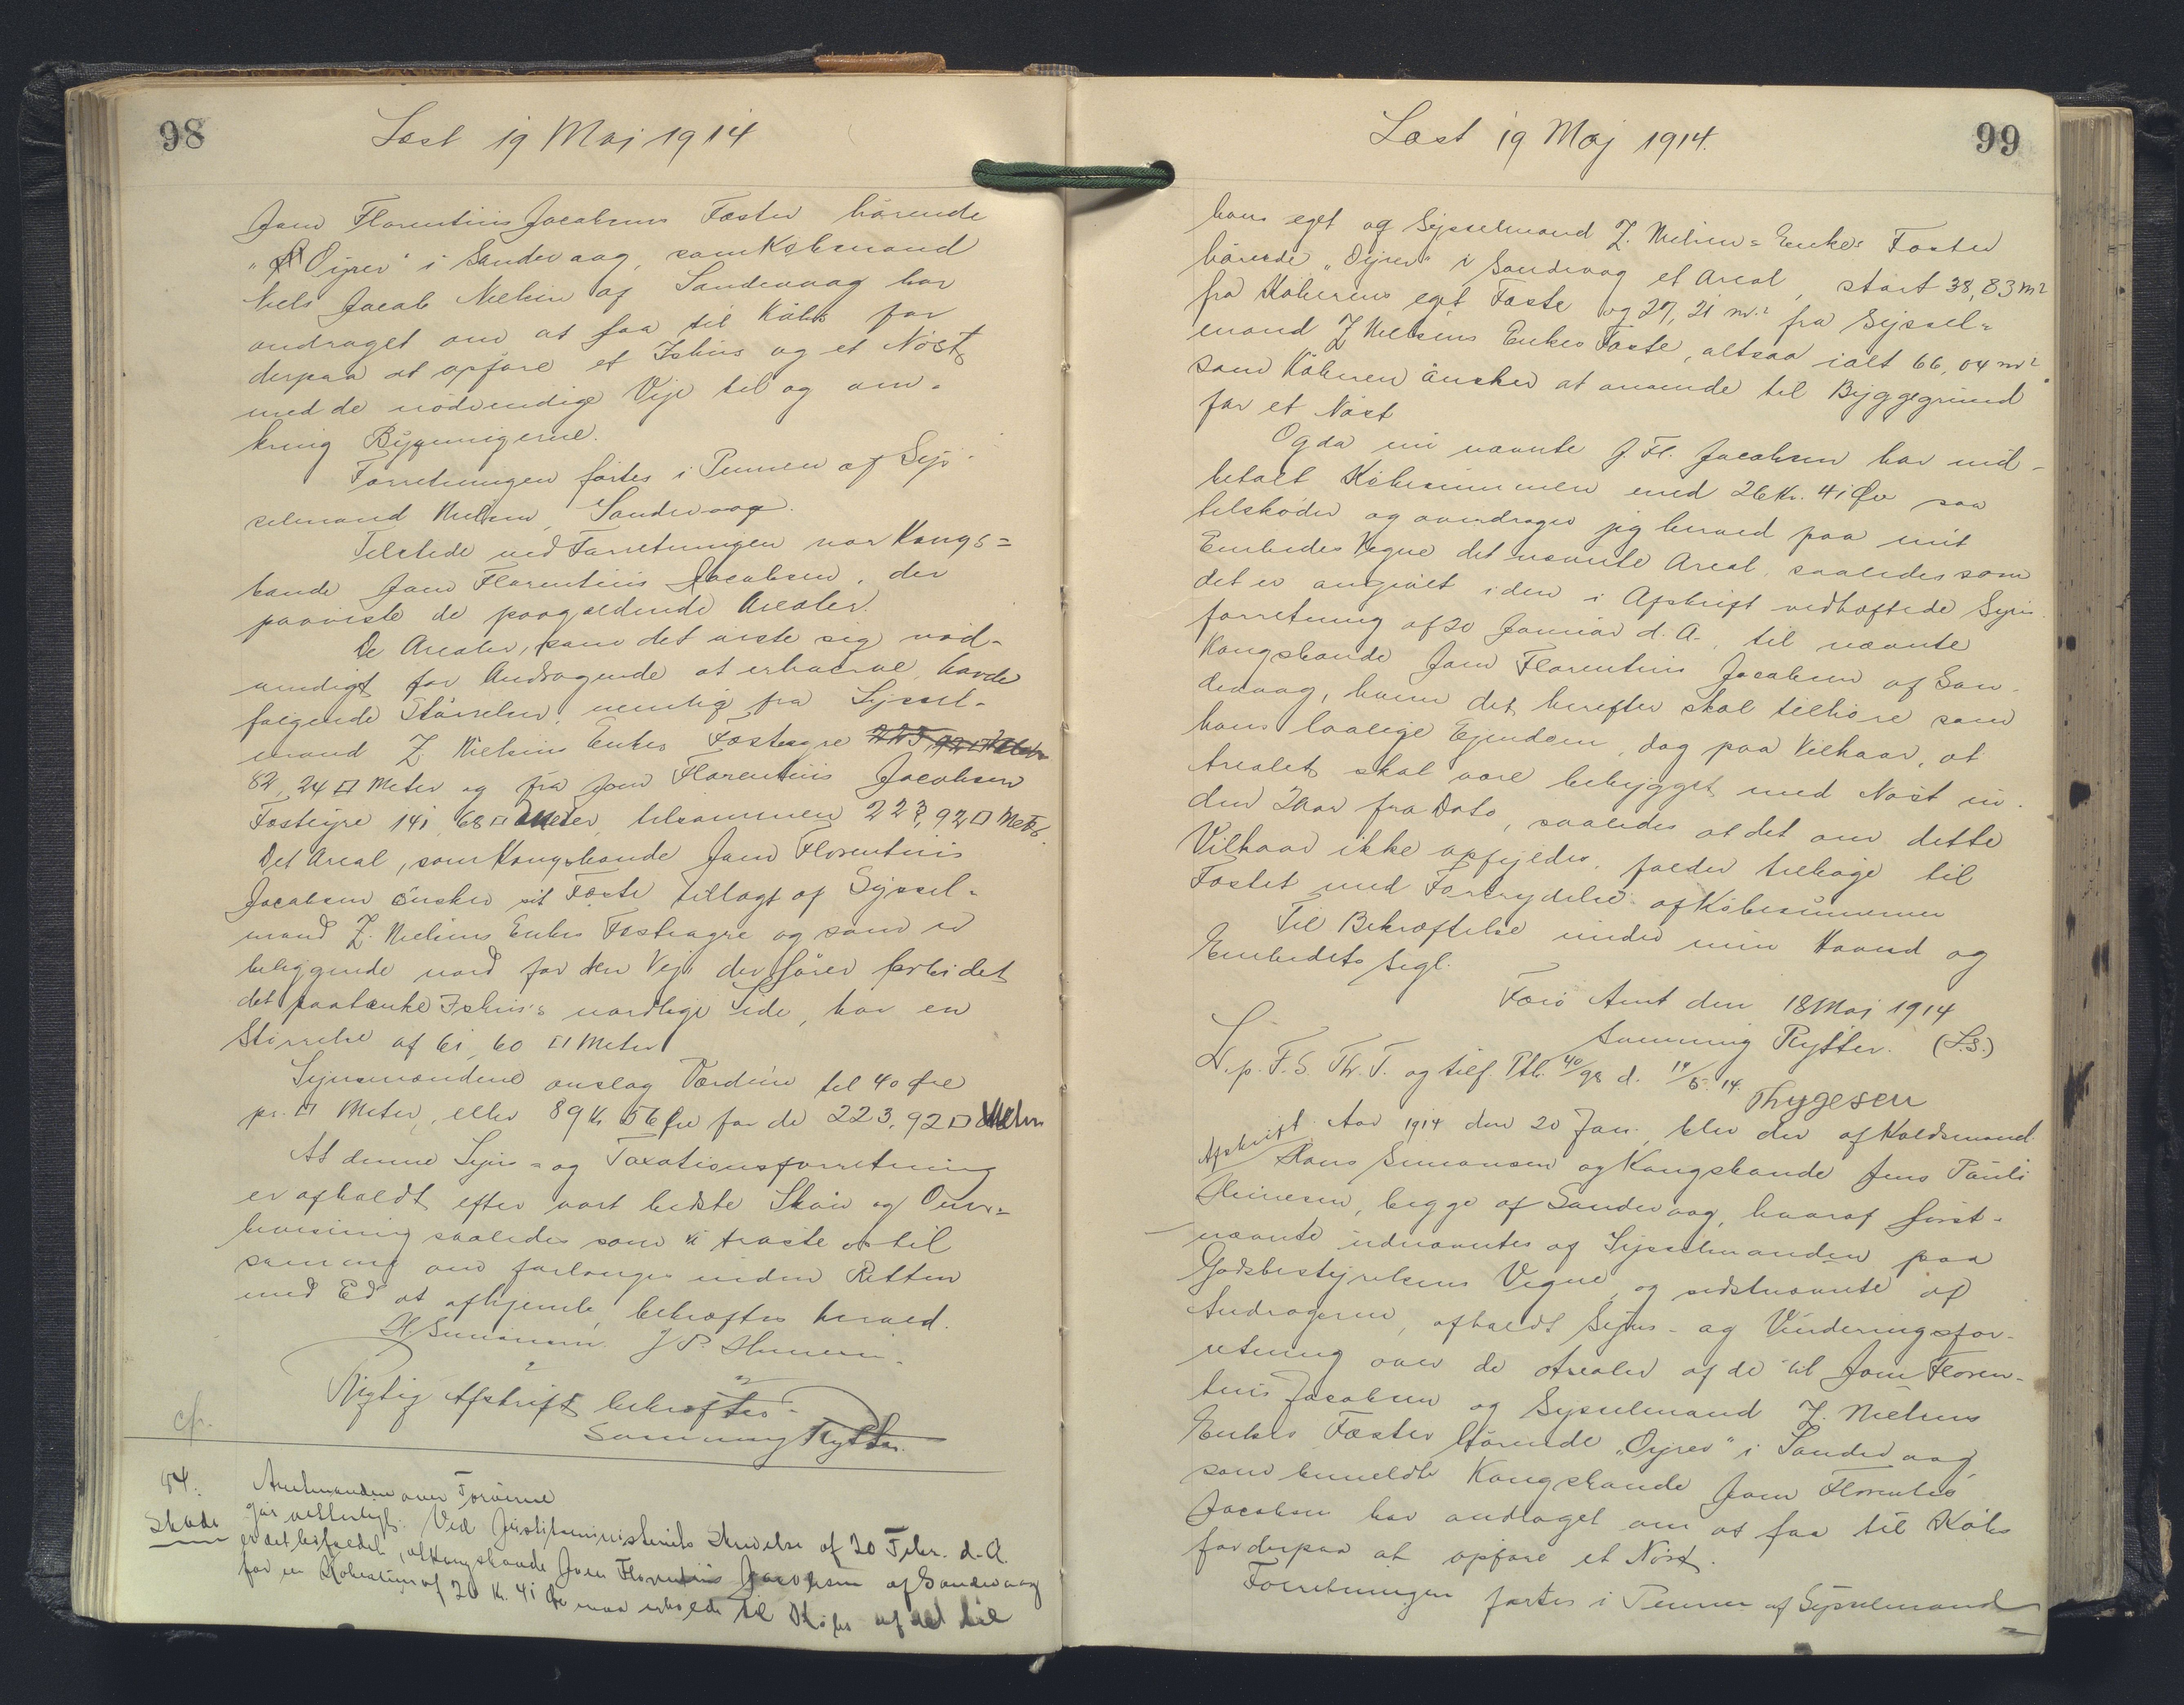 98
Læst 19 Maj 1914
Joen Florentinus Jacobsens Fæster hørende
"Oyrer" i Sandevaag, som Købmand
Niels Jacob Nielsen af Sandevaag har
andraget om at faa til Købs for
derpaa at opføre et Ishus og et Nøst,
med de nødvendige Veje til og om-
kring Bygningerne.
Forretningen førtes i Pennen af Sys-
selmand Nielsen, Sandevaag.
Tilstede ved Forretningen var Kongs=
bonde Joen Florentinus Jacobsen, der
paaviste de paagældende Arealer.
De Arealer, som det viste sig nød-
vendigt for Andragende at erhverve, havde
følgende Størrelser, nemlig fra Syssel-
mand Z. Nielsens Enkes Fæsteagre
82,24 □ Meter og fra Joen Florentinus Jacobsen
Fæsteyre 141,68 □ Meter, tilsammen 223,92 □ Meter.
Det Areal, som Kongsbonde Joen Florentinus
Jacobsen ønsker sit Fæste tillagt af Syssel-
mand Z. Nielsens Enkes Fæsteagre og som er
beliggende nord for den Vej, der fører forbi det
det paatænkte Ishus's nordlige Side, har en
Størrelse af 61,60 □ Meter
Synsmændene anslog Værdien til 40 Øre
pr. □ Meter, eller 89 Kr 56 Øre for de 223,92 □ Meter
At denne Syns- og Taxationsforretning
er afholdt efter vort bedste Skøn og Over=
bevisning saaledes som vi trøste os til
samme om forlanges inden Retten
med Ed at afhjemle, bekræftes herved.
H Simonsen J P. Heinesen.
Rigtig Afskrift bekræftes.
Sumning Rytter.
cfr.
54.
Skøde
Amtmanden over Færøerne
Gør vitterligt: Ved Justitsministeriets Skrivelse af 20 Febr. d. A.
er det bifaldet, at Kongsbonde Joen Florentinus Jacobsen af Sandevaag
for en Købesum af 26 Kr. 41 Øre maa erholde til Købs af det til
99
Læst 19 Maj 1914.
hans eget og Sysselmand Z. Nielsens Enkes Fæster
hørende "Oyrer" i Sandevaag et Areal, stort 38,83 m²
fra Køberens eget Fæste og 27,21 m.² fra Syssel=
mand Z Nielsens Enkes Fæste, altsaa ialt 66,04 m².
som Køberen ønsker at anvende til Byggegrund
for et Nøst
Og da nu nævnte J. Fl. Jacobsen har ind-
betalt Købesummen med 26 Kr. 41 Øre saa
tilskøder og overdrager jeg herved paa mit
Embedes Vegne det nævnte Areal, saaledes som
det er angivet i den i Afskrift vedhæftede Syns
forretning af 20 Januar d. A. til nævnte
Kongsbonde Joen Florentinus Jacobsen af San-
devaag, hvem det herefter skal tilhøre som
hans lovlige Ejendom, dog paa Vilkaar, at
Arealet skal være bebygget med Nøst in-
den 2 Aar fra Dato, saaledes at det om dette
Vilkaar ikke opfyldes, falder tilbage til
Fæstet med Fortrydelse af Købesummen
Til Bekræftelse under min Haand og
Embedets Segl.
Færø Amt den 18 Maj 1914
Sumning Rytter. (L.S.)
L. p. F. S. Th. T. og tilf. Ptb. 40/98 d. 19/5. 14.
Thygesen
Afskrift. Aar 1914 den 20 Jan. blev der af Koldsmand
Hans Simonsen og Kongsbonde Jens Pauli
Heinesen, begge af Sandevaag, hvoraf først-
nævnte udnævntes af Sysselmanden paa
Godsbestyrelsens Vegne og sidstnævnte af
Andrageren, afholdt Syns- og Vurderingsfor-
retning over de Arealer af de til Joen Floren-
tinus Jacobsen og Sysselmand Z. Nielsens
Enkes Fæster hørende "Oyrer" i Sandevaag,
som bemeldte Kongsbonde Joen Florentius
Jacobsen har andraget om at faa til Købs
for derpaa at opføre et Nøst.
Forretningen førtes i Pennen af Sysselmand